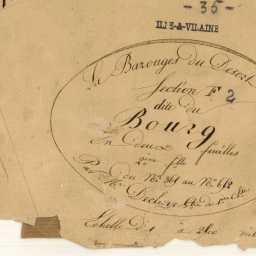 - 35 -
ILLE-&-VILAINE
La Bazouges du Desert
Section F 2
dite du
Bourg
En deux feuilles
2e flle
du No 369 au No 662
Par Mr
Echelle de 1 à 2500